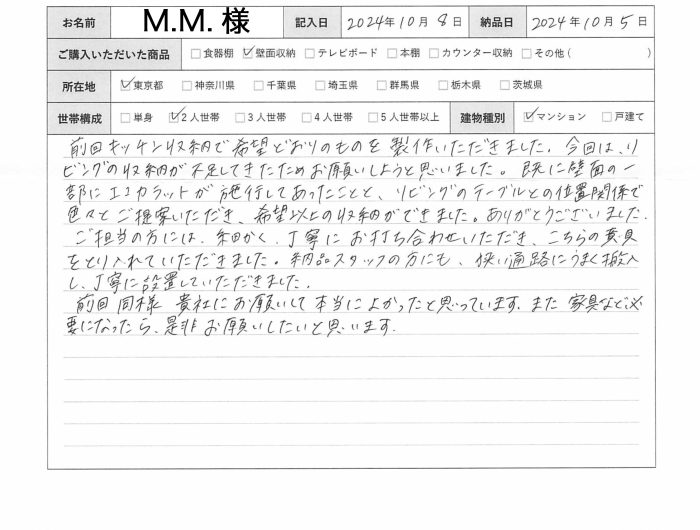 お名前 M.M. 様 記入日 2024年10月8日 納品日 2024年10月5日
ご購入いただいた商品 □食器棚 ☑壁面収納 □テレビボード □本棚 □カウンター収納 □その他( )
所在地 ☑東京都 □神奈川県 □千葉県 □埼玉県 □群馬県 □栃木県 □茨城県
世帯構成 □単身 ☑2人世帯 □3人世帯 □4人世帯 □5人世帯以上 建物種別 ☑マンション □戸建て
前回キッチン収納で希望どおりのものを製作いただきました。今回は、リ
ビングの収納が不足してきたためお願いしようと思いました。既に壁面の一
部にエコカラットが施行してあったことと、リビングのテーブルとの位置関係で
色々とご提案いただき、希望以上の収納ができました。ありがとうございました。
ご担当の方には、細かく、丁寧にお打ち合わせいただき、こちらの意見
をとり入れていただきました。納品スタッフの方にも、狭い通路にうまく搬入
し、丁寧に設置していただきました。
前回同様 貴社にお願いして本当によかったと思っています。また家具など必
要になったら、是非お願いしたいと思います。